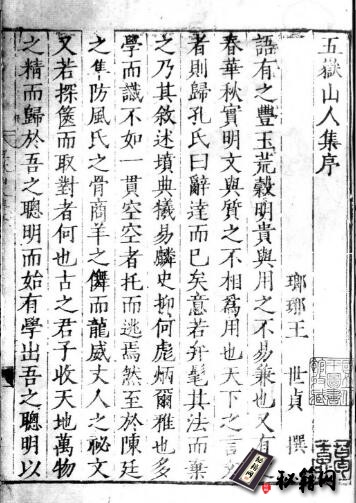 五嶽山人集序
瑯琊王 世貞 撰
語有之豐玉荒穀明貴與用之不易兼也又有
春華秋實明文與質之不相為用也天下之言文
者則歸孔氏曰辭達而已矣意若弁髦其法而棄
之乃其敘述墳典犧易麟史抑何彪炳爾雅也多
學而識不如一貫空空者托而逃焉然至於陳廷
之隼防風氏之骨商羊之儛而龍威丈人之祕文
又若探篋而取對者何也古之君子收天地萬物
之精而歸於吾之聰明而始有學出吾之聰明以
秘籍网